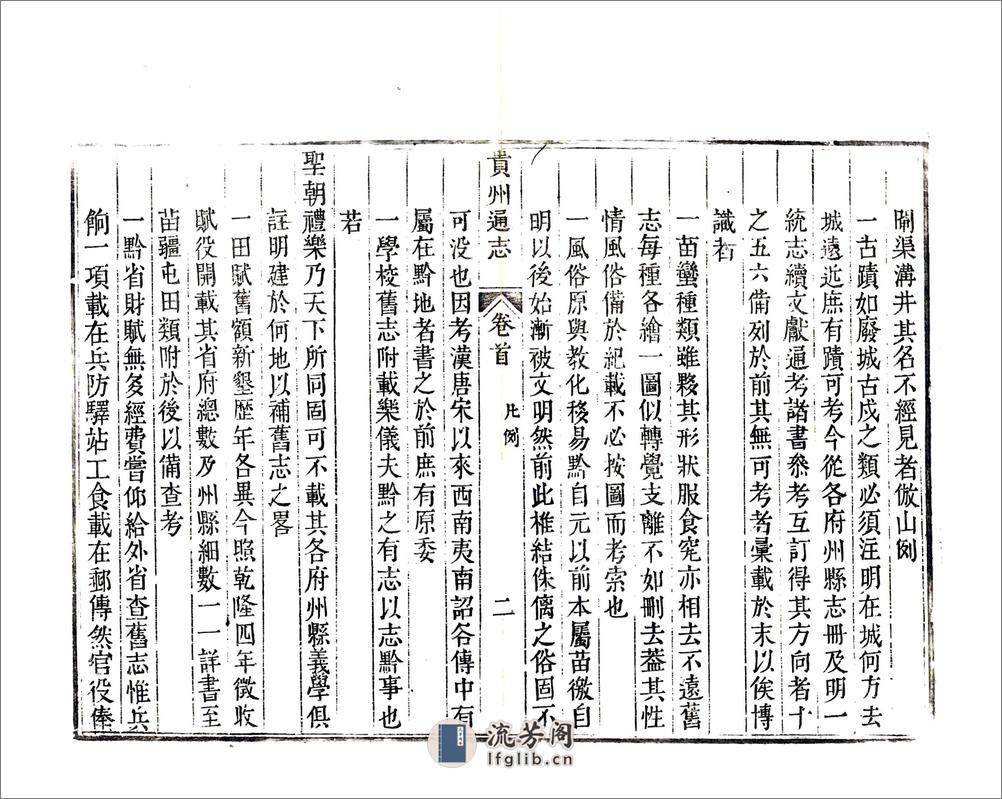 閘渠溝井其名不經見者倣山例
一古蹟如廢城古戍之類必須注明在城何方去
城遠近庶有蹟可考今從各府州縣志冊及明一
統志續文獻通考諸書叅考互訂得其方向者十
之五六備列於前其無可考者彙載於末以俟博
識者
一苗蠻種類雖夥其形狀服食究亦相去不遠舊
志每種各繪一圖似轉覺支離不如刪去葢其性
情風俗備於紀載不必按圖而考索也
一風俗原與教化移易黔自元以前本屬苗徼自
明以後始漸被文明然前此椎結侏𠌯之俗固不
貴州通志 卷首 凡例 二
可没也因考漢唐宋以來西南夷南詔各傳中有
屬在黔地者書之於前庶有原委
一學校舊志附載樂儀夫黔之有志以志黔事也
若
聖朝禮樂乃天下所同固可不載其各府州縣義學俱
註明建於何地以補舊志之畧
一田賦舊額新墾歷年各異今照乾隆四年徵收
賦役開載其省府總數及州縣細數一一詳書至
苗疆屯田類附於後以備查考
一黔省財賦無多經費嘗仰給外省查舊志惟兵
餉一項載在兵防驛站工食載在郵傳然官役俸
流芳阁
lfglib.cn